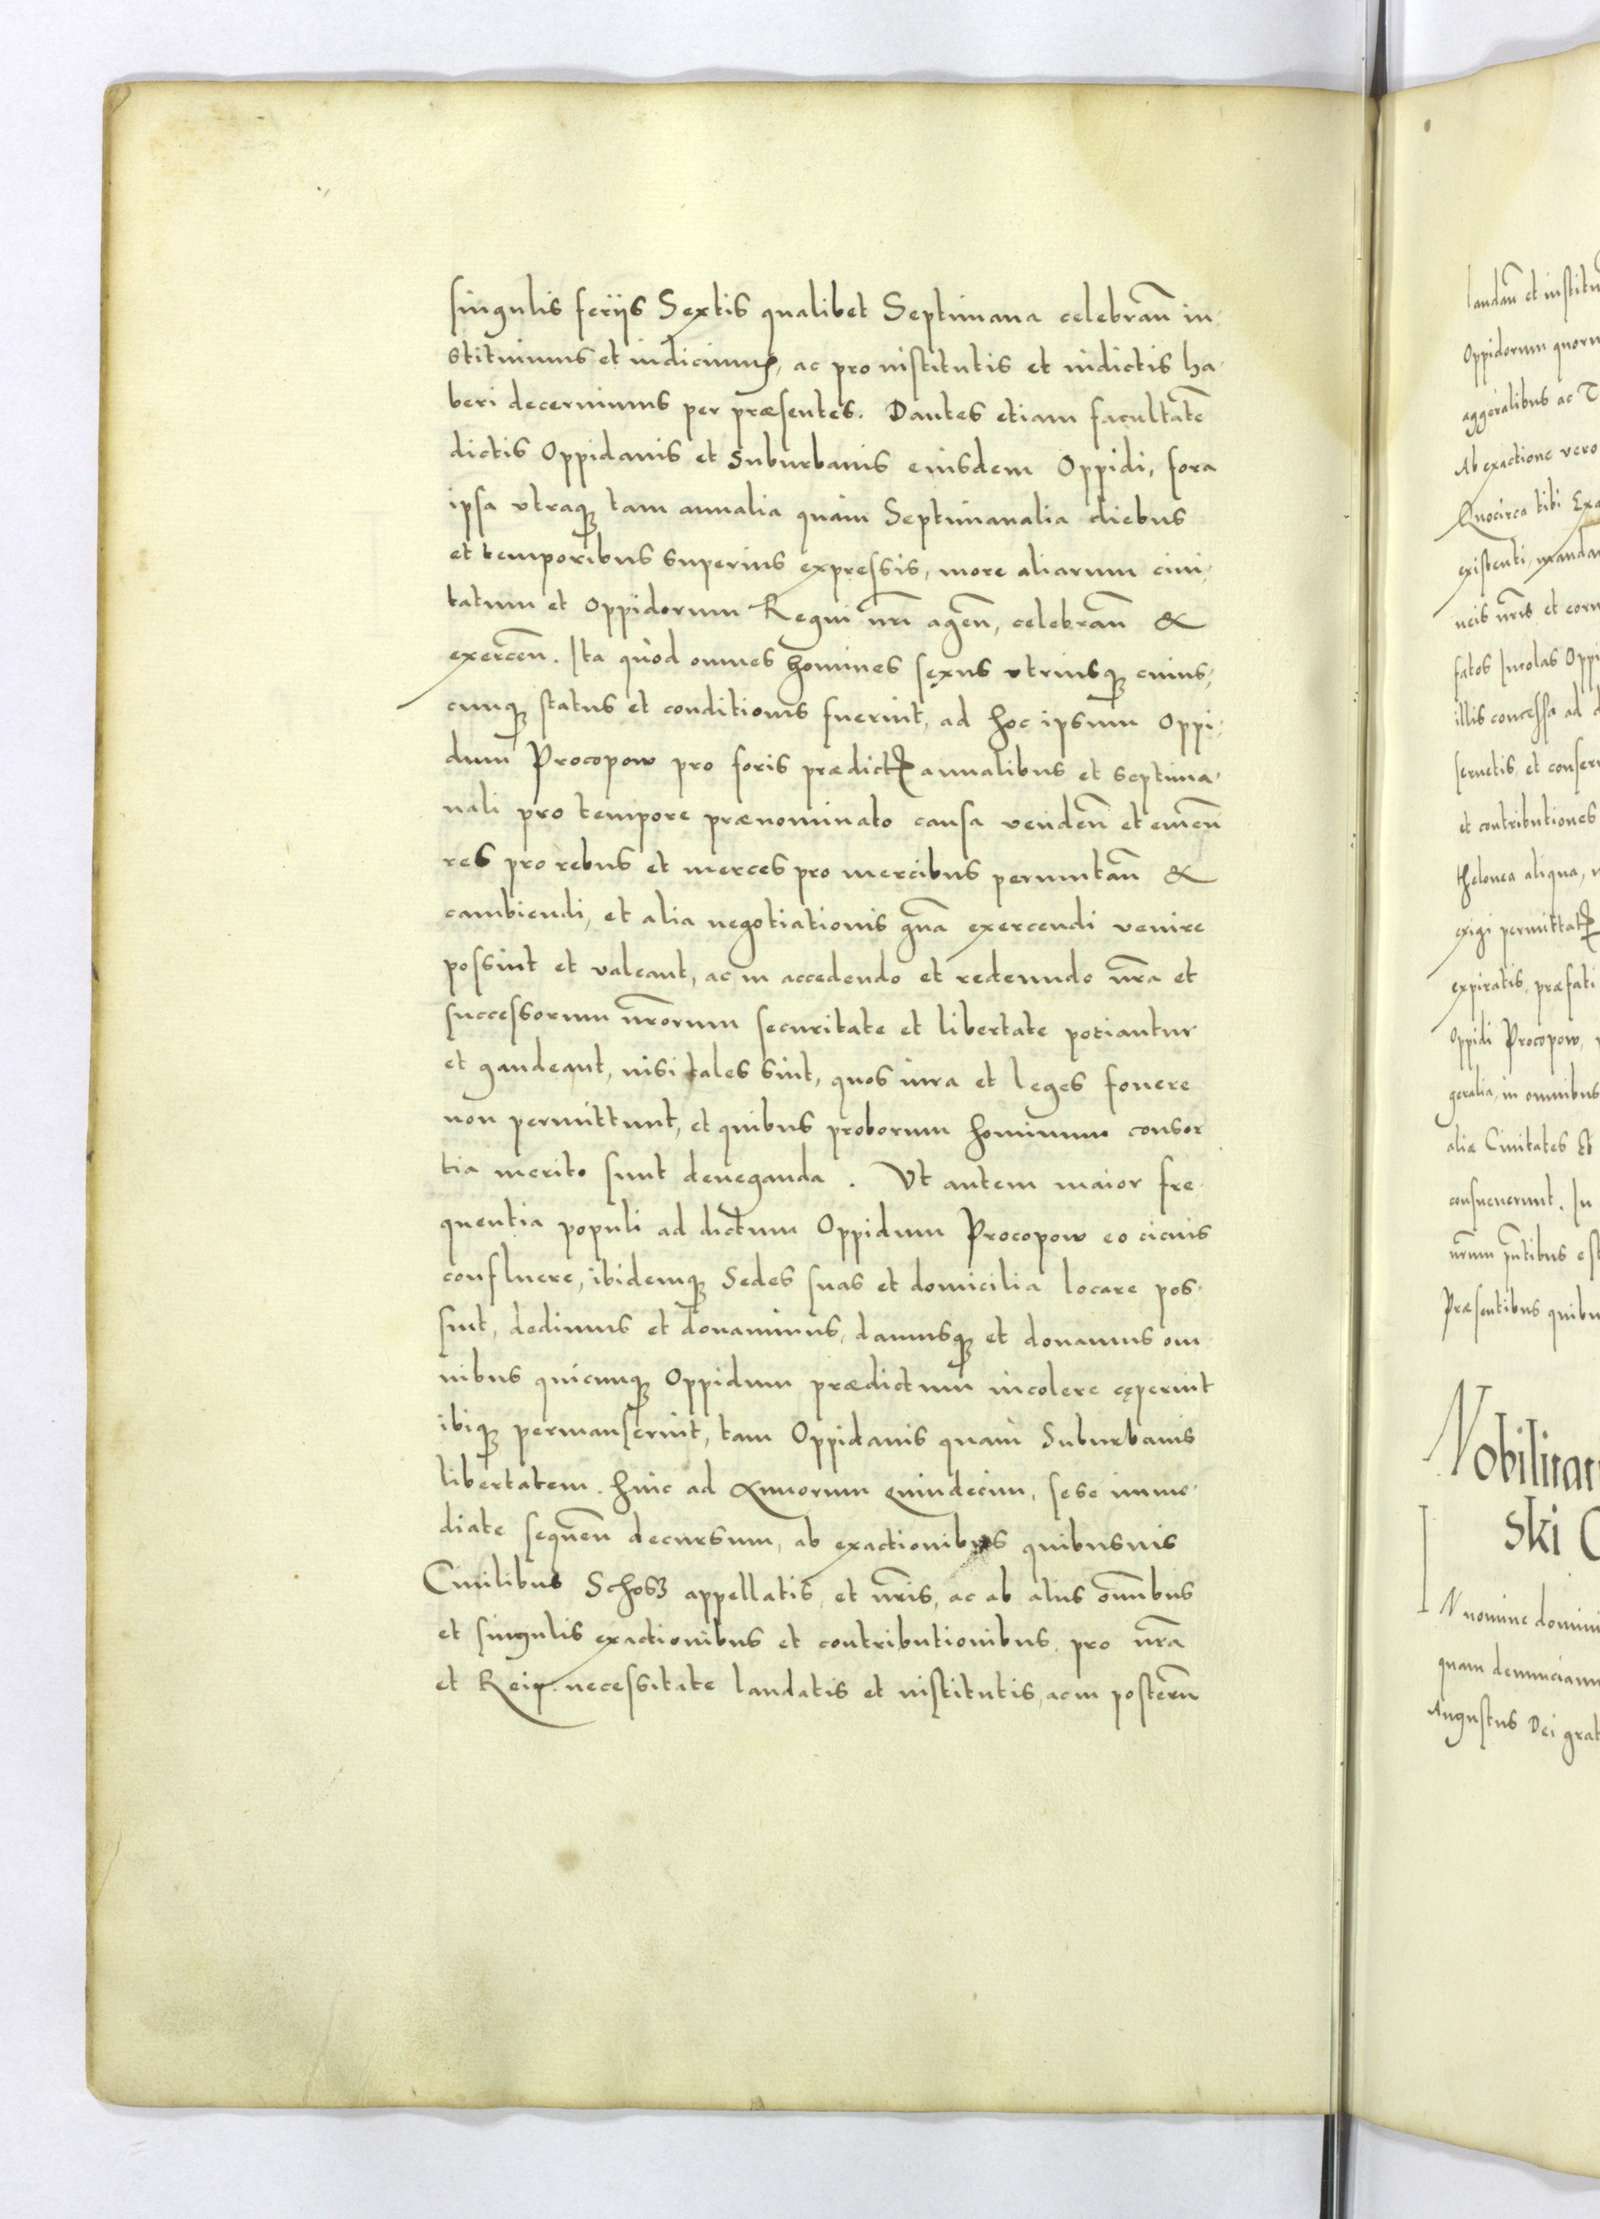 singulis feriis Sextis qualibet Septimana celebrañ in-
stituimus et indicimus, ac pro institutis et indictis ha-
beri decernimus per præsentes. Dantes etiam facultatē
dictis Oppidanis et Suburbanis eiusdem Oppidi, fora
ipsa vtraqꝫ tam annalia quàm Septimanalia diebus
et temporibus superius expressis, more aliarum ciui-
tatum et Oppidorum Regni nr̃i ageñ, celebrañ &
exerceñ. Ita quòd omnes homines sexus vtriusqꝫ cuius-
cunqꝫ status et conditionis fuerint, ad hoc ipsum Oppi-
dum Procopow pro foris prædictꝭ annalibus et septima-
nali pro tempore prænominato causa vendeñ et emeñ
res pro rebus et merces pro mercibus permutañ &
cambiendi, et alia negotiationis gñа exercendi venire
possint et valeant, ac in accedendo et redeundo nr̃a et
successorum nr̃orum securitate et libertate potiantur
et gaudeant, nisi tales sint, quos iura et leges fouere
non permittunt, et quibus proborum hominum consor
tia merito sunt deneganda. Vt autem maior fre-
quentia populi ad dictum Oppidum Procopow eo cicius
confluere, ibidemqꝫ Sedes suas et domicilia locare pos-
sint, dedimus et donauimus, damusqꝫ et donamus om
nibus quicunqꝫ Oppidum prædictum incolere cęperint
ibiqꝫ permanserint, tam Oppidanis quàm Suburbanis
libertatem. hinc ad Annorum quindecim, sese imme-
diate sequeñ decursum, ab exactionibus quibusuis
Ciuilibus Schosz appellatis, et nr̃is, ac ab aliis om̃ibus
et singulis exactionibus et contributionibus, pro nr̃a
et Reip. necessitate laudatis et institutis, ac in posterũ
laudañ et institu
Oppidorum quoru
aggeralibus ac T
Ab exactione vero
Quocirca tibi Exa
existenti, manda
ucis nr̃is et coru
fatos Incolas Oppi
illis concessa ad
seruetis, et conser
et contributiones
thelonea aliqua,
exigi permittatꝭ
expiratis, præfati
Oppidi Procopow,
geralia, in omnibus
aliæ Ciuitates Et
consueuerunt. In
nr̃um pñtibus est
Præsentibus quibu
Nobilitat
ski C
IN nomine domini
quam denunciam
Augustus Dei grat